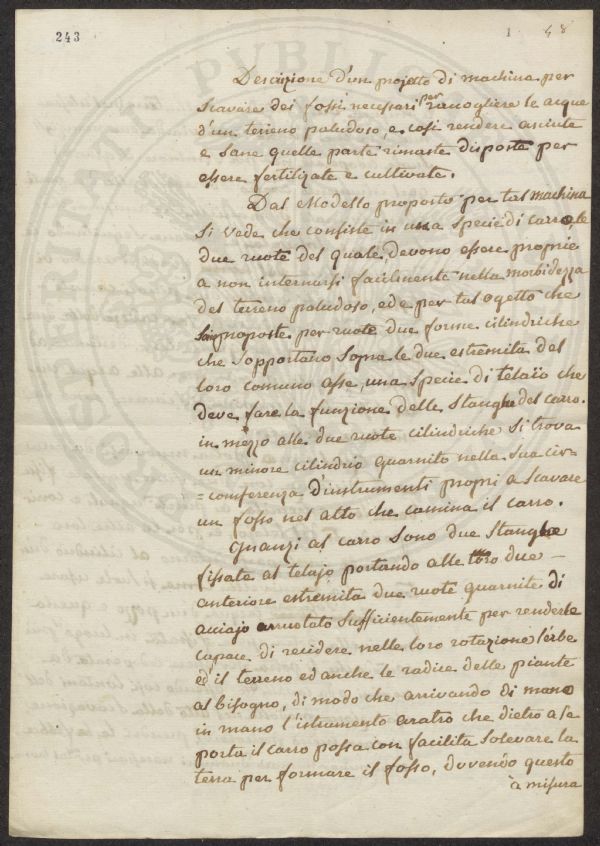 243
1 48
Descrizione d'un projetto di machina per
scavare dei fossi necessari per racogliere le acque
d'un terreno paludoso, e cosi rendere asciute
e sane quelle parte rimaste disposte per
essere fertilizate e cultivate.
Dal Modello proposto per tal machina
si vede che consiste in una specie di carro, le
due ruote del quale, devono essere proprie
a non internarsi facilmente nella morbidezza
del terreno paludoso, ed e per tal ogetto che
son proposte per ruote due forme cilindriche
che sopportano sopra le due estremita del
loro comuno asse, una specie di telaïo che
deve fare la funzione delle stanghe del carro.
in mezzo alle due ruote cilindriche si trova
un minore cilindrio guarnito nella sua cir=
=conferenza d'instrumenti propri a scavare
un fosso nel atto che camina il carro.
Quanzi al carro sono due stanghe
fissate al telajo portando alle loro due
anteriore estremita due ruote guarnite di
acciajo arruotato sufficientemente per renderle
capace di recidere nelle loro rotazione l'erbe
ed il terreno ed anche le radice delle piante
al bisogno, di modo che arrivando di mano
in mano l'istrumento aratro che dietro a se
porta il carro possa con facilita solevare la
terra per formare il fosso, dovendo questo
à misura